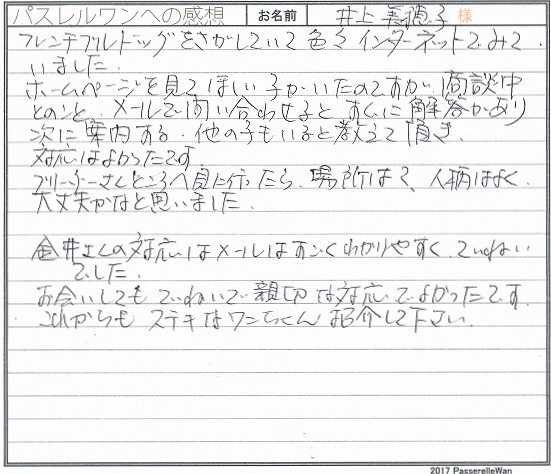 パスレルワンへの感想 お名前 井上美穂子 様
フレンチブルドッグをさがしていて色々インターネットでみて
いました。
ホームページを見てほしい子がいたのですが、商談中
とのこと、メールで問い合わせると、すぐに解答があり
次に案内する、他の子もいると教えて頂き、
対応はよかったです
ブリーダーさんところへ見に行ったら、場所はく、人柄はよく、
大丈夫かなと思いました。
金井さんの対応はメールはすごくわかりやすく、ていねい
でした。
お会いしてもていねいで親切な対応でよかったです。
これからもステキなワンちゃん紹介して下さい。
2017 PasserelleWan